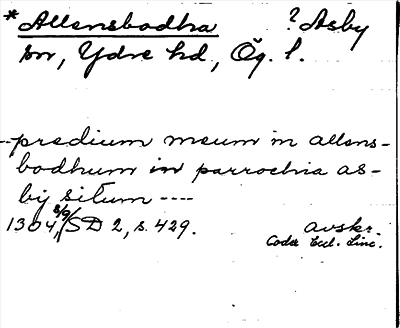 *Allensbodha ? Asby
sn, Ydre hd, Ög. l.
--predium meum in allens-
bodhum in parrochia as-
by situm ----
1304, 8/9/ SD 2, s. 429. avskr.
Codex Eccl. Linc.